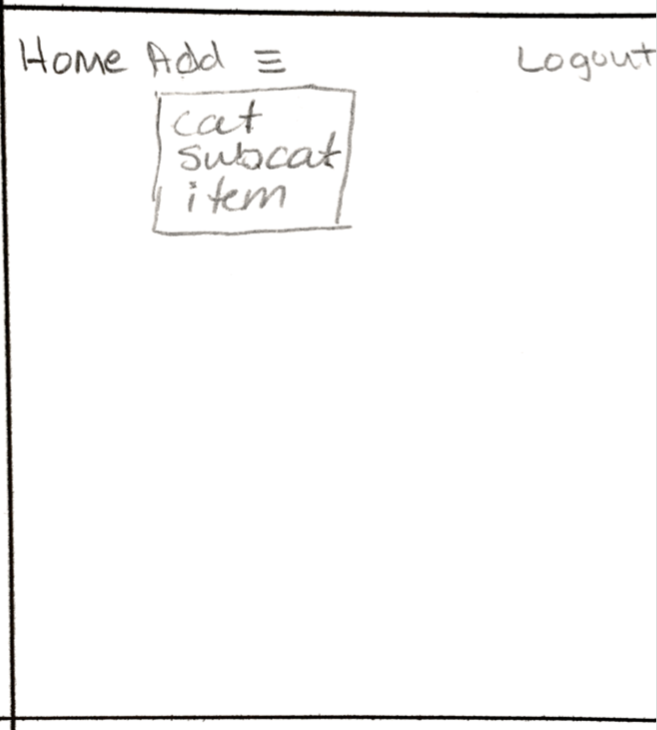 Home Add ≡ Logout
cat
subcat
item